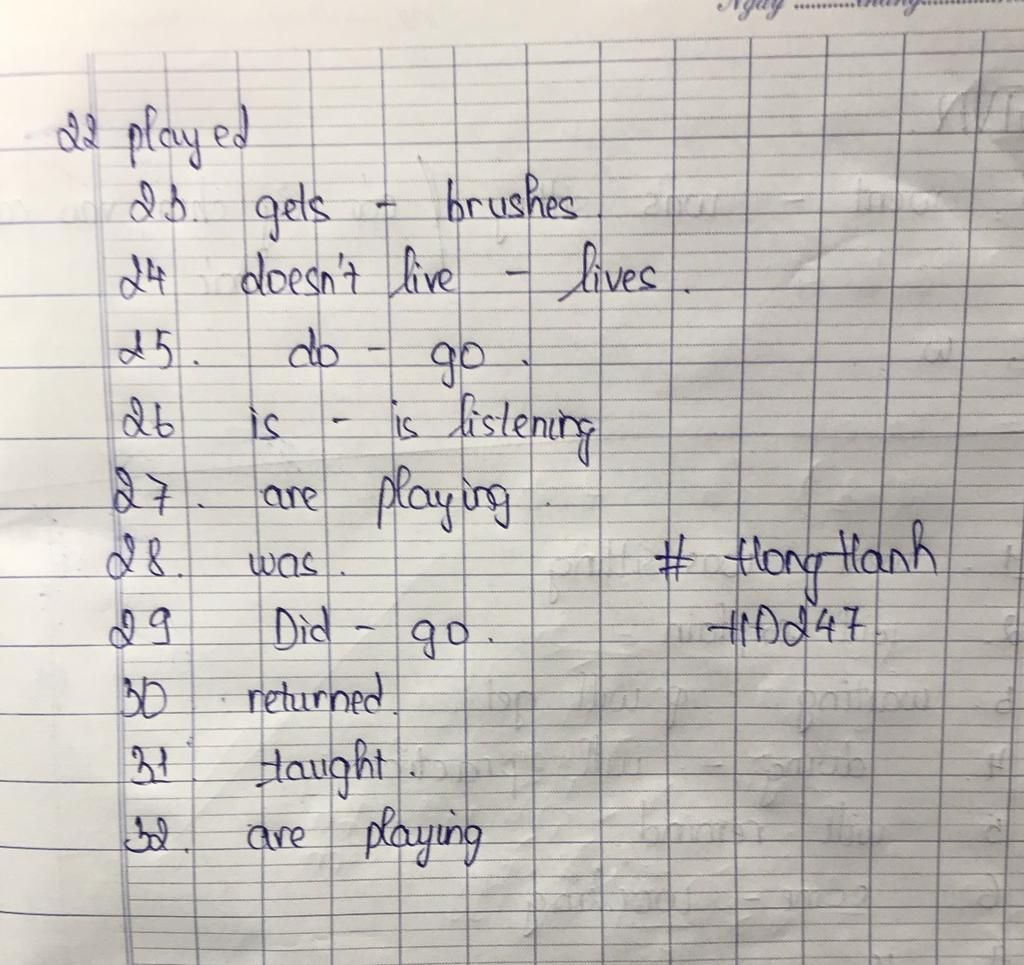 Ngày ............tháng............
22 played
23. gets - brushes
24 doesn't live - lives.
25. do - go.
26 is - is listening
27. are playing.
28. was. # Hong Hanh
29 Did - go. HD247.
30 returned.
31 taught.
32. are playing